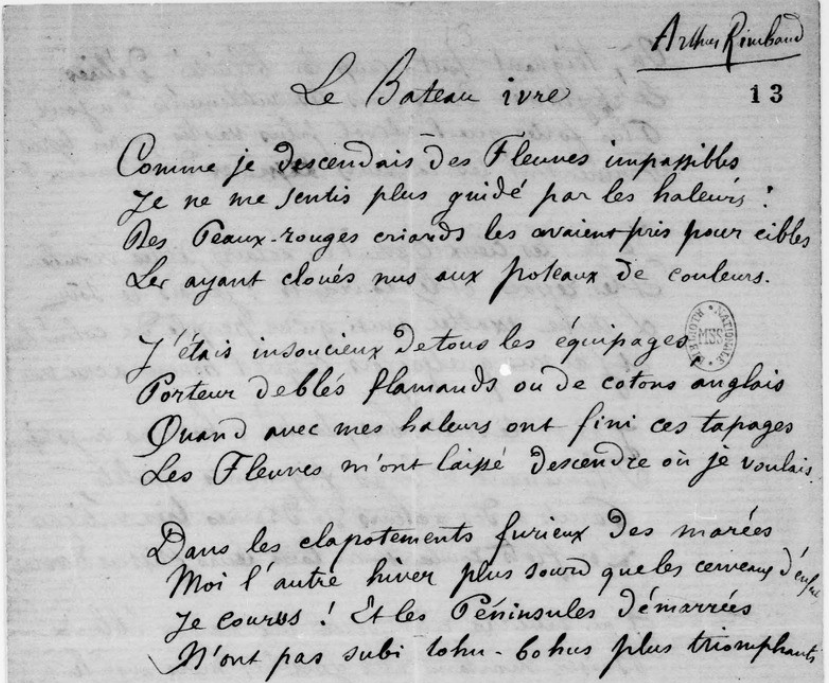 Arthur Rimbaud
Le Bateau ivre
13
Comme je descendais des Fleuves impassibles
Je ne me sentis plus guidé par les haleurs :
Des Peaux-rouges criards les avaient pris pour cibles
Les ayant cloués nus aux poteaux de couleurs.
J'étais insoucieux de tous les équipages
BIBLIOTH. NATIONALE
MSS
Porteur de blés flamands ou de cotons anglais
Quand avec mes haleurs ont fini ces tapages
Les Fleuves m'ont laissé descendre où je voulais.
Dans les clapotements furieux des marées
Moi l'autre hiver plus sourd que les cerveaux d'enfants
Je courus ! Et les Péninsules démarrées
N'ont pas subi tohu-bohus plus triomphants